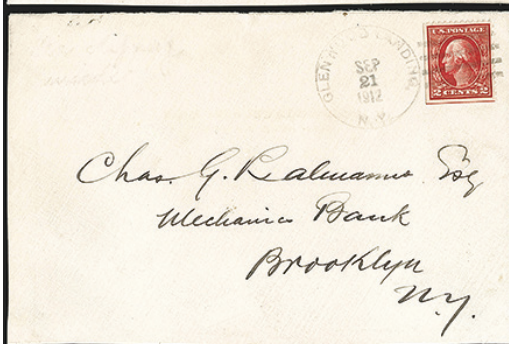 GLENWOOD LANDING,
SEP
21
1912
N.Y.
U.S. POSTAGE
2 CENTS 2
Chas. G. Balmanno Esq
Mechanics Bank
Brooklyn
N.Y.